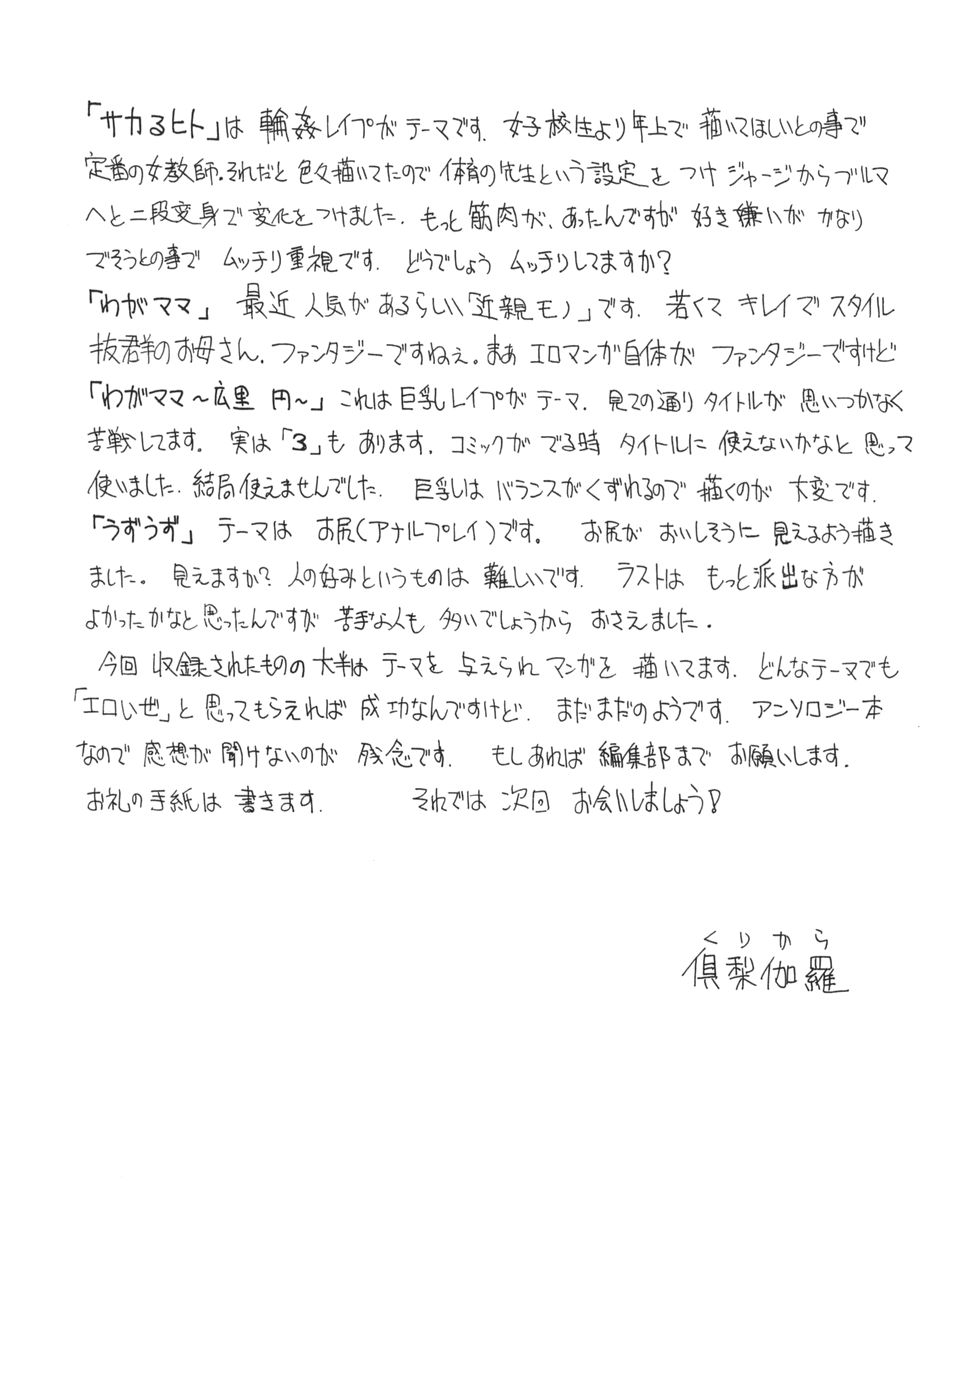 「サカるヒト」は 輪姦レイプがテーマです. 女子校生より年上で 描いてほしいとの事で
定番の女教師。それだと 色々描いてたので 体育の先生という設定を つけ ジャージからブルマ
へと二段変身で 変化をつけました. もっと筋肉が、あったんですが 好き嫌いが かなり
でそうとの事で ムッチリ重視です. どうでしょう ムッチリしてますか?
「わがママ」 最近 人気が あるらしい「近親モノ」です. 若くて キレイで スタイル
抜群のお母さん. ファンタジーですねぇ。まぁ エロマンガ自体が ファンタジーですけど
「わがママ~広里 円~」これは巨乳レイプが テーマ. 見ての通りタイトルが 思いつかなく
苦戦してます。 実は「3」も あります. コミックが でる時 タイトルに 使えないかなと 思って
使いました. 結局使えませんでした. 巨乳は バランスがくずれるので 描くのが 大変です.
「うずうず」 テーマは お尻(アナルプレイ)です。 お尻が おいしそうに 見えるよう描き
ました。 見えますか? 人の好みというものは 難しいです. ラストは もっと派出な方が
よかったかなと思ったんですが 苦手な人も 多いでしょうから おさえました.
今回 収録されたものの 大半は テーマを 与えられ マンガを 描いてます. どんなテーマでも
「エロいぜ」と 思ってもらえれば 成功なんですけど. まだまだのようです. アンソロジー本
なので 感想が聞けないのが 残念です. もしあれば 編集部まで お願いします.
お礼の手紙は 書きます. それでは 次回 お会いしましょう!
くりから
倶梨伽羅